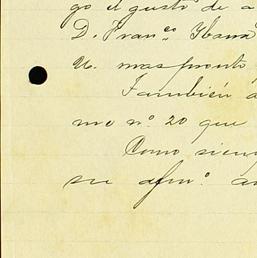 go el gusto de a
D. Fran.co Ybarra
U. mas pronto
También a
mo n.o 20 que
Como siem
su afmo. a